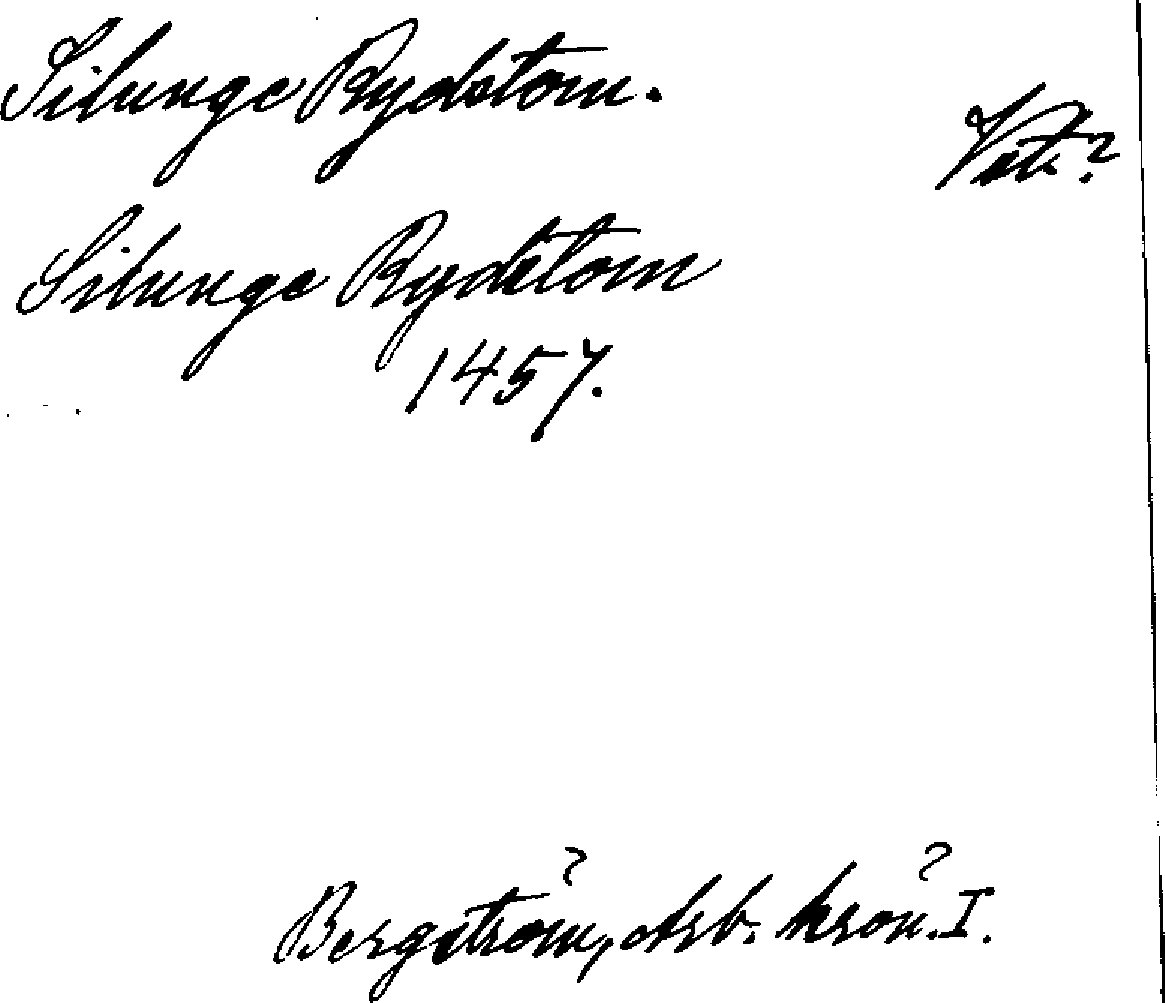 Silunge Rydstom.
Vst.?
Silunge Rydstom
1457.
? ?
Bergström, Arb. krön. I.